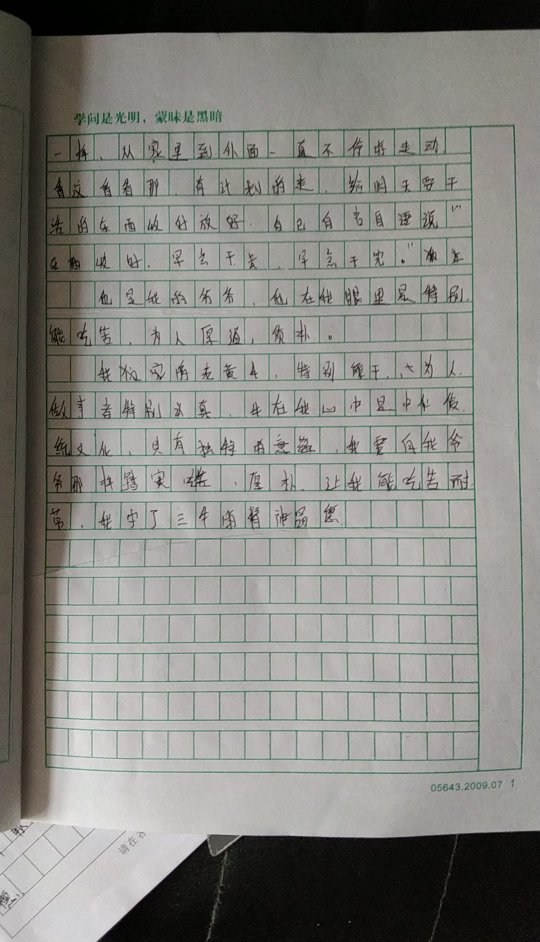 学问是光明，蒙昧是黑暗
一样，从家里到外面一直不停的走动
看这看看那，有计划的走，给明天要干
活的东西收付放好，自己自言自语说“
收好，早去干去，早点干完。”
也是我的爷爷，他在我眼里是特别
能吃苦，为人厚道，须朴。
我家的老黄牛，特别能干，为人
做事者特别认真，牛在我心中是中化传
统文化，具有独特的意，我要向我爷
爷那样踏实，厚朴，让我能吃苦耐
劳，我学了三牛精神
05643.2009.07 1
请在